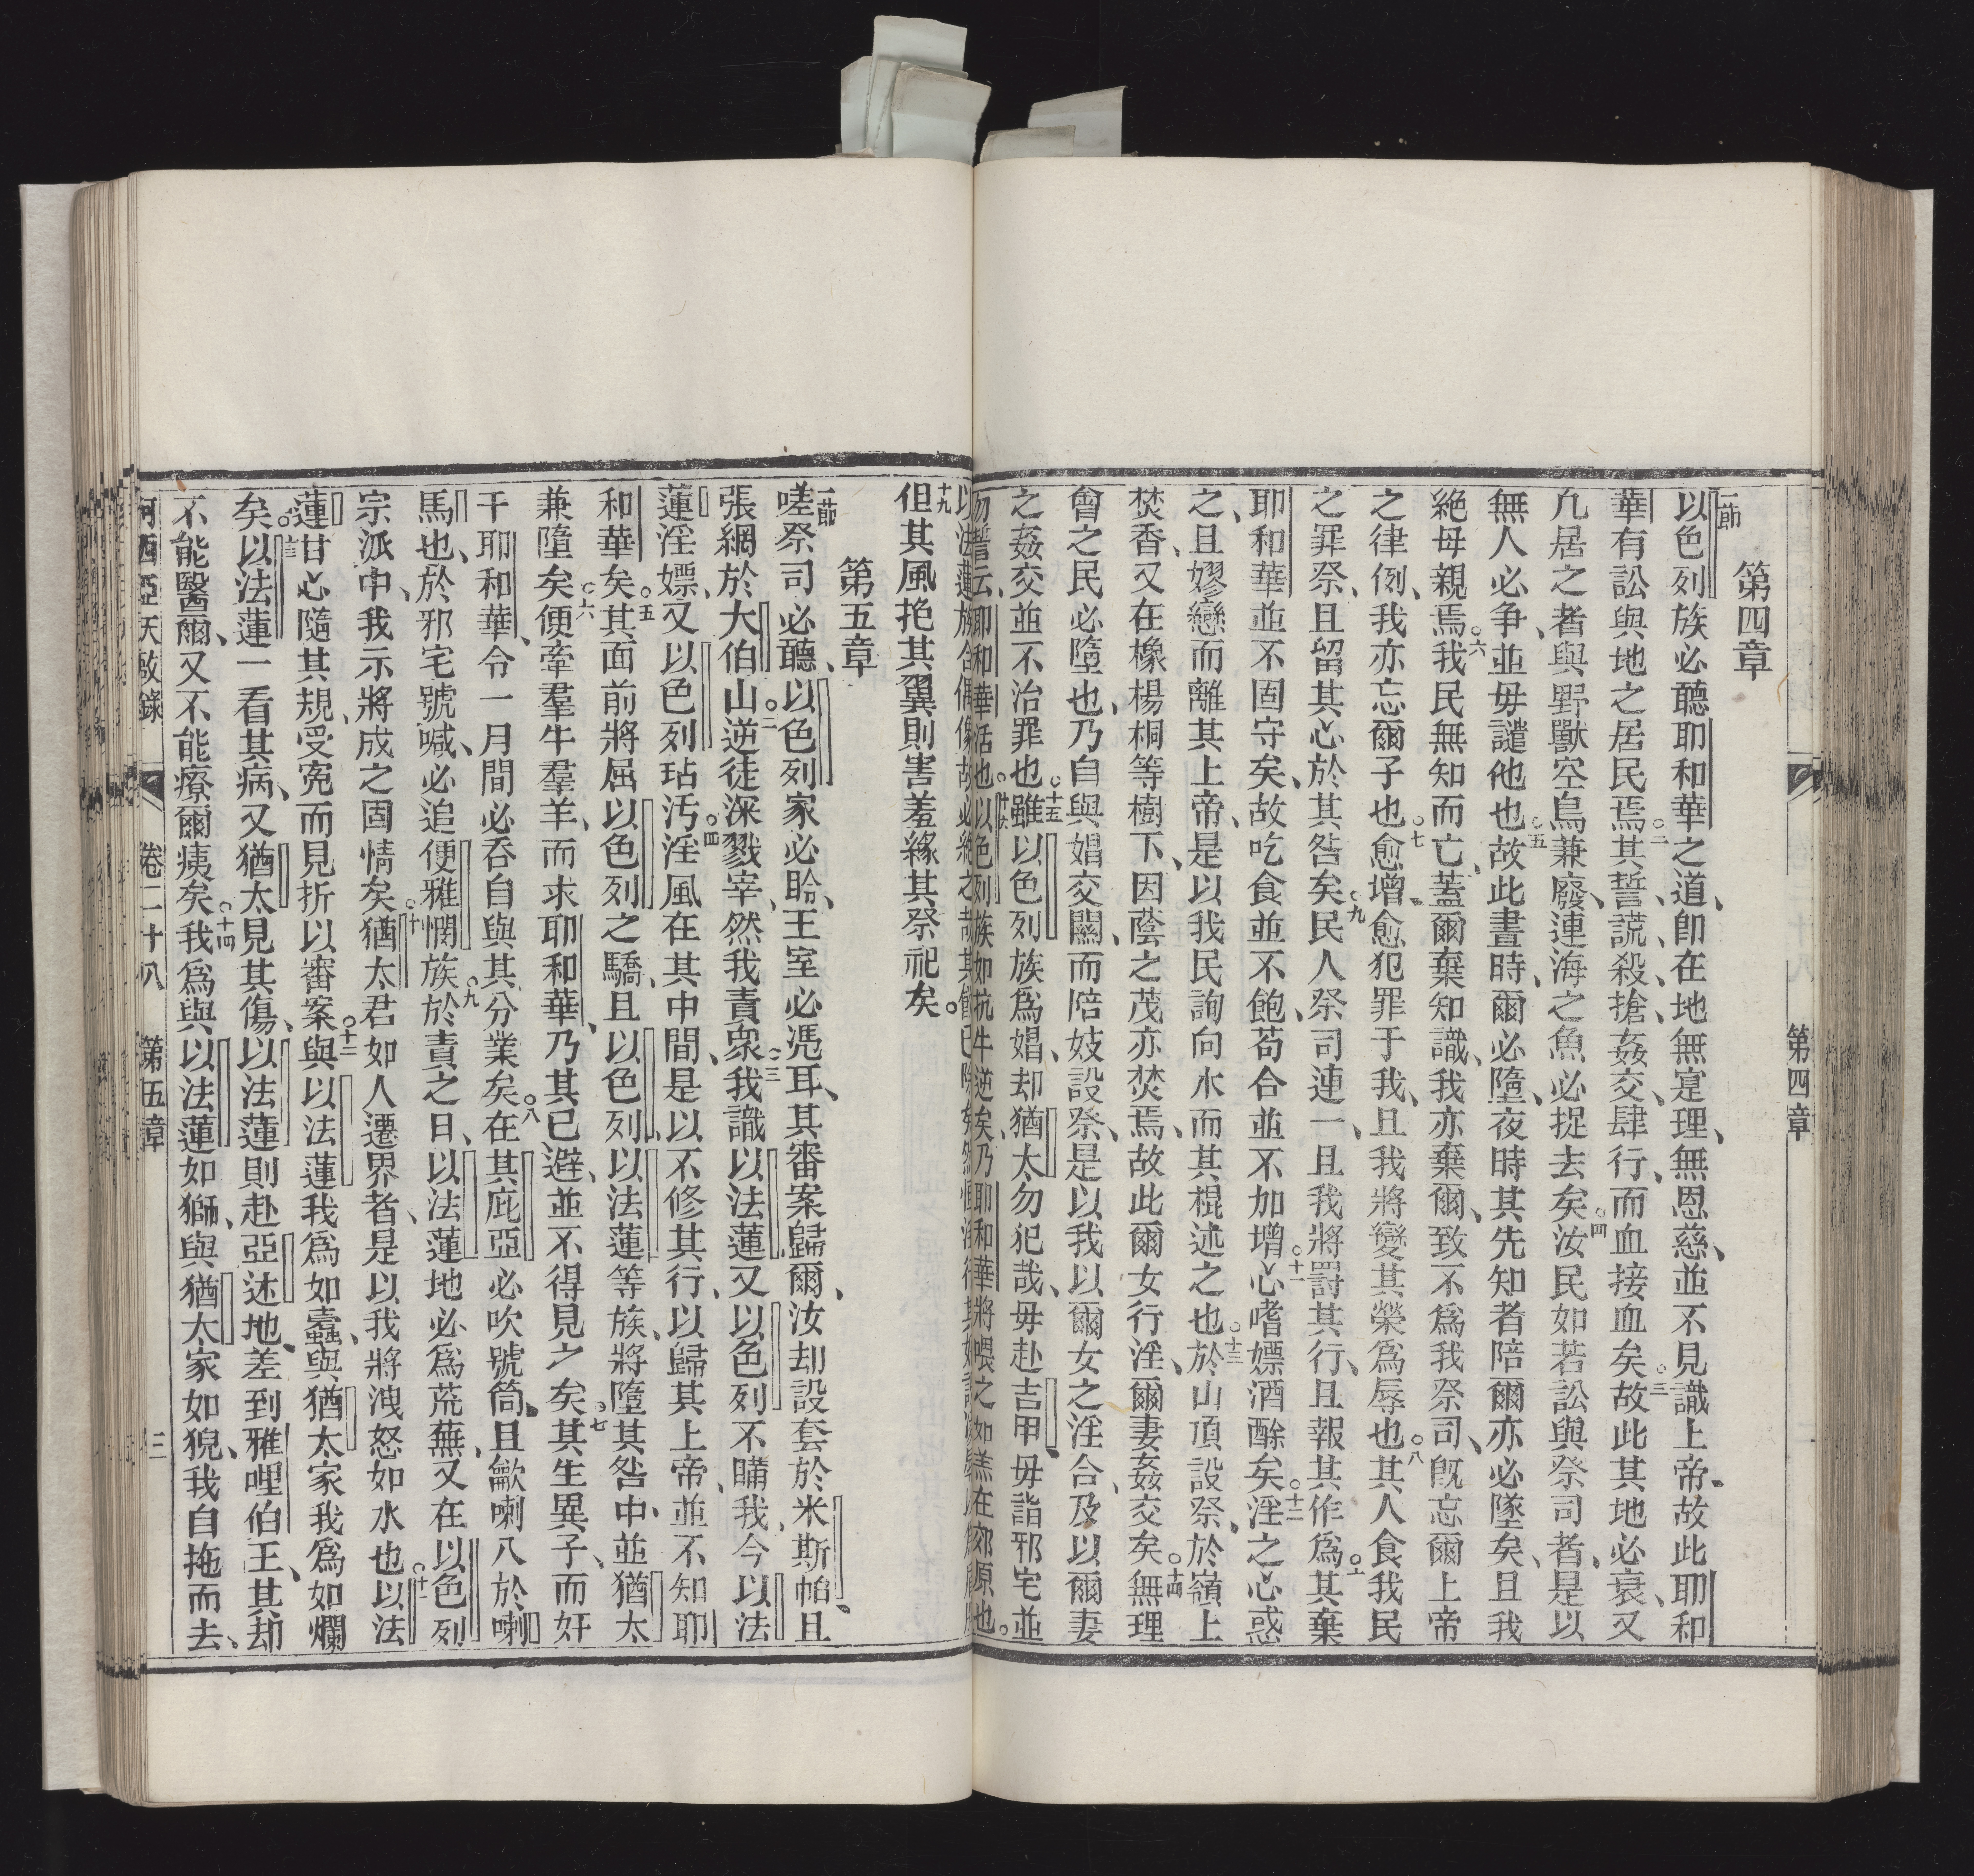 第四章
一節 以色列族必聽耶和華之道、卽在地無寔理、無恩慈、並不見識上帝、故此耶和
華有訟與地之居民焉。二其誓、謊、殺、搶、姦交、肆行、而血接血矣。三故此其地必衰、又
凡居之者與野獸空鳥兼廢、連海之魚必捉去矣。四汝民如若訟與祭司者、是以
無人必争、並毋譴他也。五故此晝時、爾必墮、夜時其先知者陪爾亦必墜矣、且我
絕母親焉。六我民無知而亡、葢爾棄知識、我亦棄爾、致不爲我祭司、旣忘爾上帝
之律例、我亦忘爾子也。七愈增愈犯罪于我、且我將變其榮爲辱也。八其人食我民
之罪祭、且留其心於其咎矣。九民人祭司連一、且我將罰其行、且報其作爲。十其棄
耶和華並不固守矣、故吃食並不飽、苟合並不加增。十一心嗜嫖酒酴矣。十二淫之心惑
之、且嫪戀而離其上帝、是以我民詢向木而其棍述之也。十三於山頂設祭、於嶺上
焚香、又在橡楊桐等樹下、因蔭之茂亦焚焉、故此爾女行淫、爾妻姦交矣。十四無理
會之民必墮也、乃自與娼交關、而陪妓設祭、是以我以爾女之淫合、及以爾妻
之姦交並不治罪也。十五雖以色列族爲娼、却猶太勿犯哉、毋赴吉甲、毋詣邪宅並
勿誓云、耶和華活也。十六以色列族如抗牛逆矣、乃耶和華將喂之如羔在郊原也。
以法蓮族合偶像故必
十九但其風抱其翼則害羞緣其祭祀矣。
第五章
一節 嗟祭司必聽、以色列家必聆、王室必憑耳、其審案歸爾、汝却設套於米斯帕、且
張網於大伯山。二逆徒深戮宰、然我責衆。三我識以法蓮、又以色列不瞞我、今以法
蓮淫嫖、又以色列玷汚。四淫風在其中間、是以不修其行、以歸其上帝、並不知耶
和華矣。五其面前將屈以色列之驕、且以色列、以法蓮等族、將墮其咎中、並猶太
兼墮矣。六便牽羣牛羣羊、而求耶和華、乃其已避、並不得見之矣。七其生異子、而奸
干耶和華、令一月間必吞自與其分業矣。八在其庇亞必吹號筒、且歃喇叭於喇
馬也、於邪宅號喊、必追便雅憫族。九於責之日、以法蓮地必爲荒蕪、又在以色列
宗派中、我示將成之固情矣。十猶太君如人遷界者、是以我將洩怒如水也。十一以法
蓮甘心隨其規、受寃而見折以審案。十二與以法蓮我爲如蠹、與猶太家我爲如爛
矣。十三以法蓮一看其病、又猶太見其傷、以法蓮則赴亞述地、差到雅哩伯王、其却
不能醫爾、又不能療爾痍矣。十四我爲與以法蓮如獅、與猶太家如猊、我自拖而去、
何西亞天啟錄 卷二十八 第五章 三
第四章